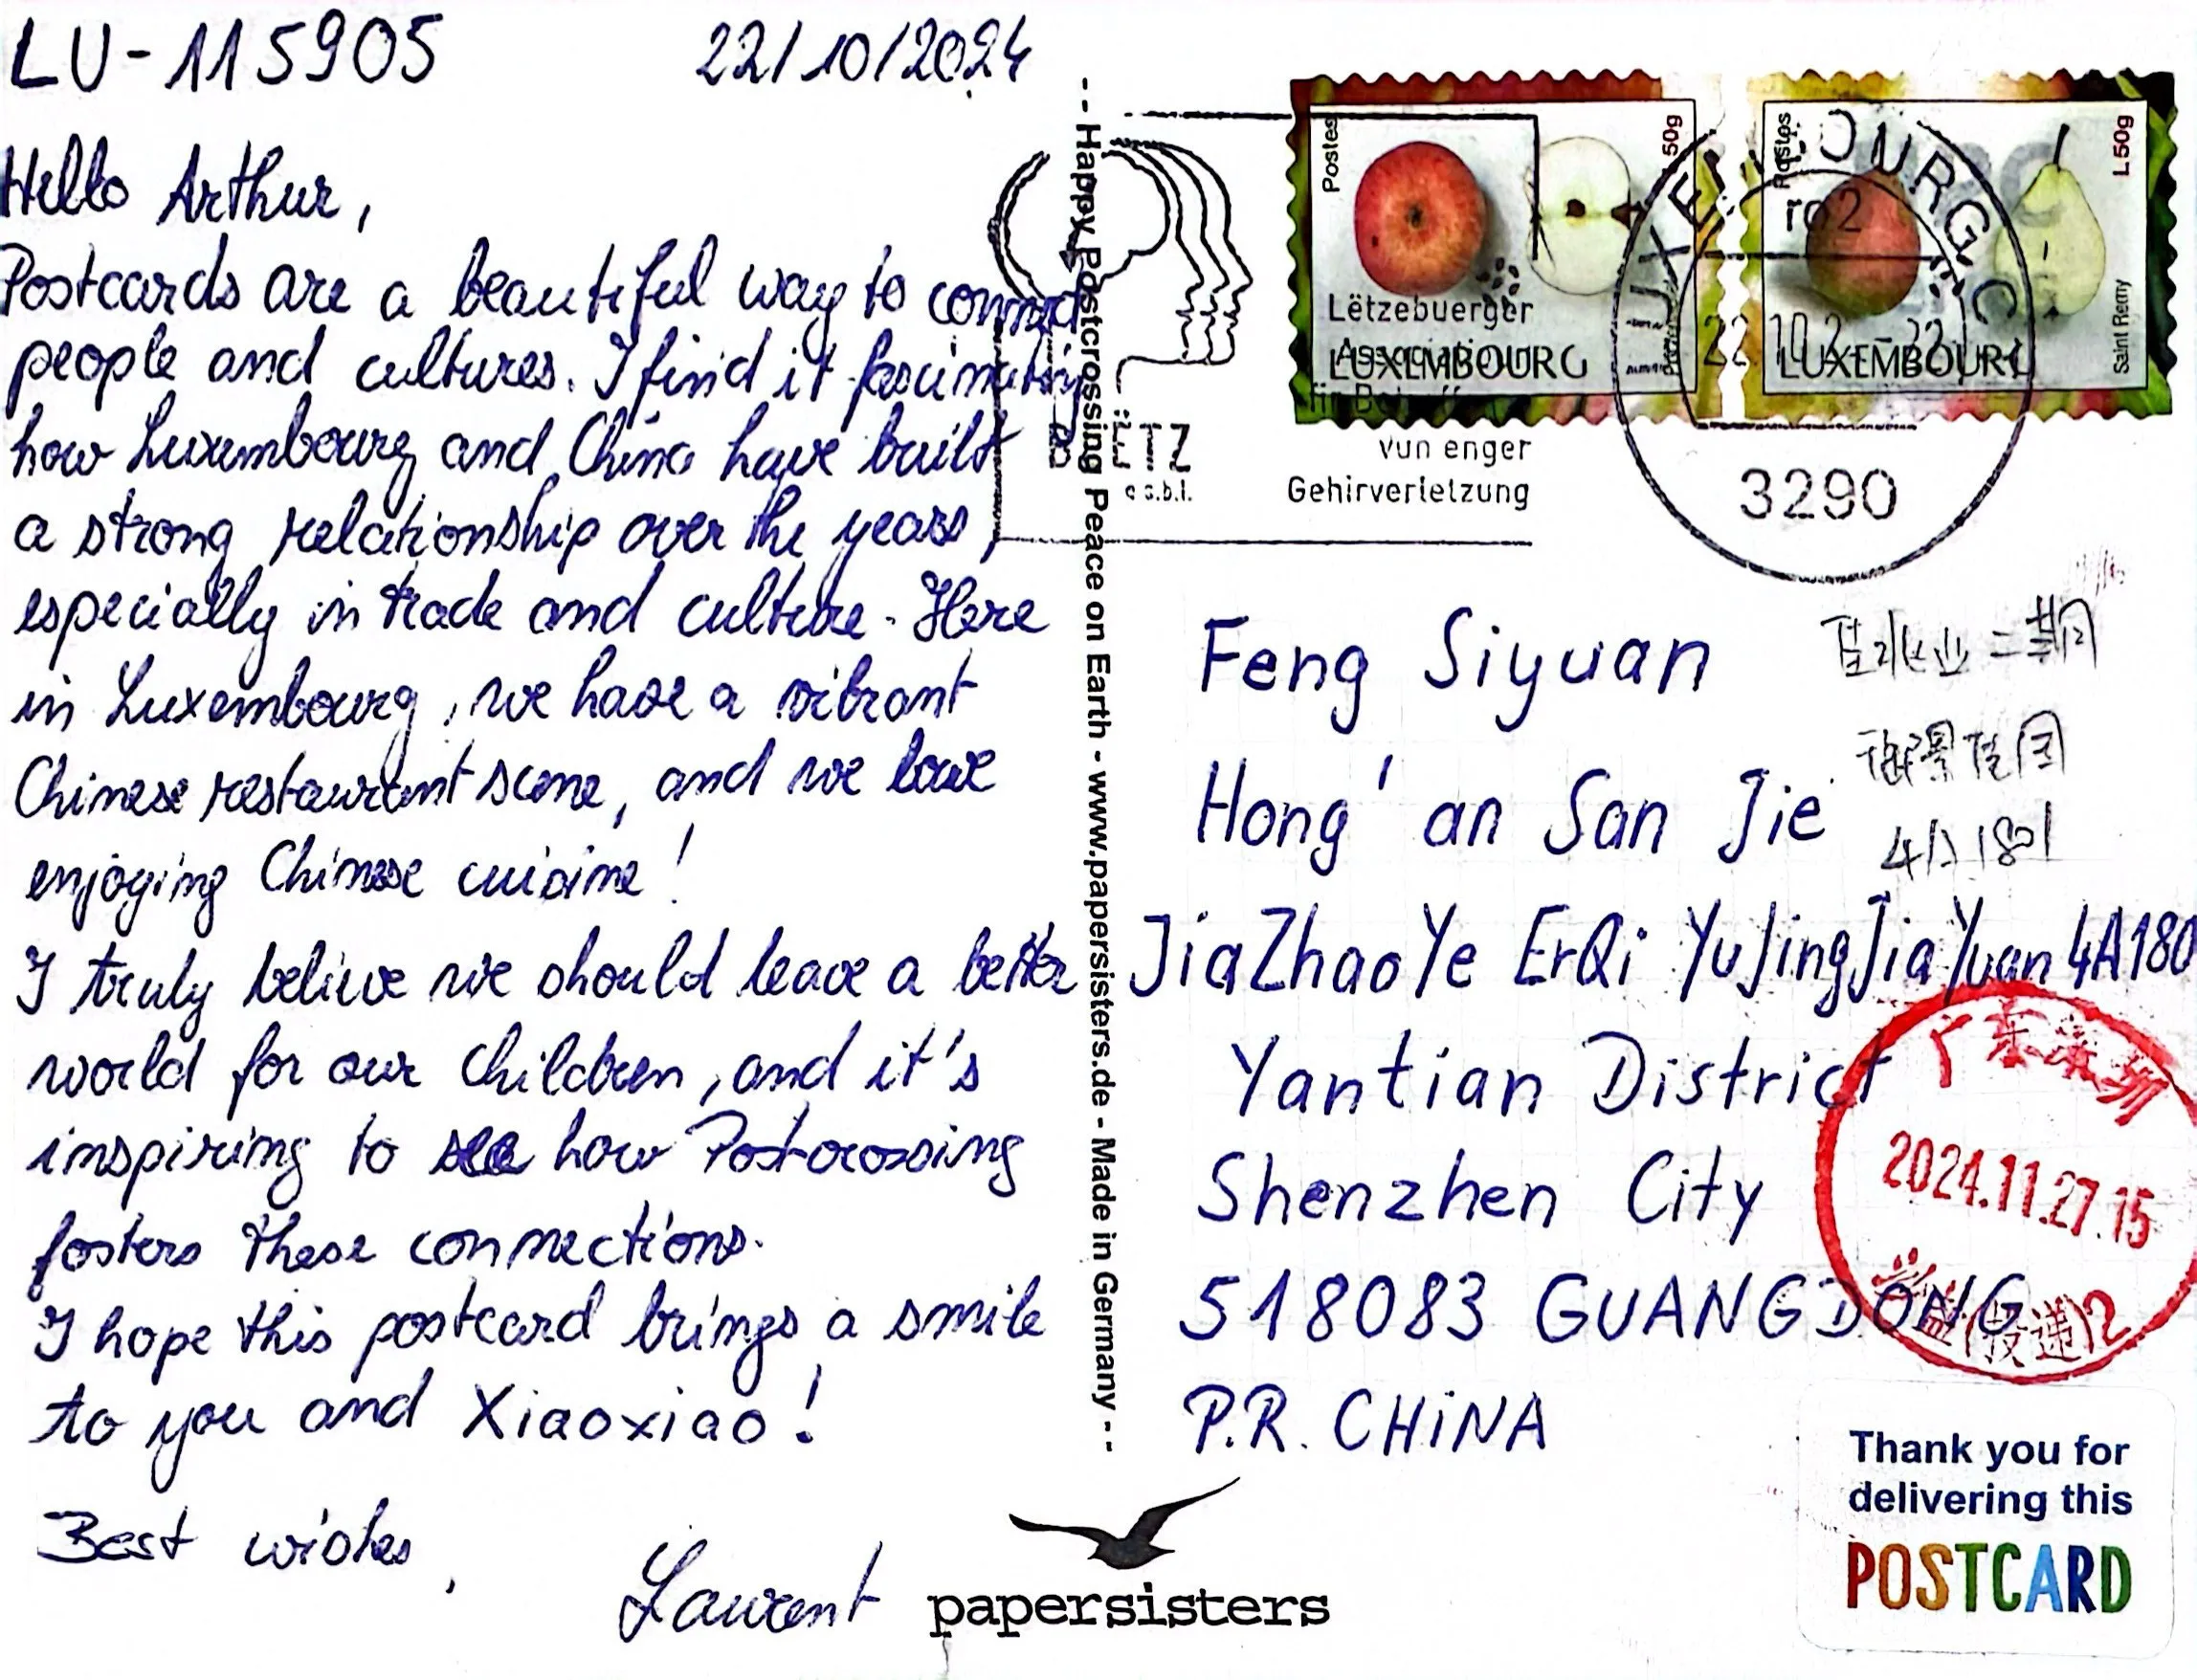 LU-115905
22/10/2024
Hello Arthur,
Postcards are a beautiful way to connect
people and cultures. I find it fascinating
how Luxembourg and China have built
a strong relationship over the years,
especially in trade and culture. Here
in Luxembourg, we have a vibrant
Chinese restaurant scene, and we love
enjoying Chinese cuisine!
I truly believe we should leave a better
world for our children, and it's
inspiring to see how Postcrossing
fosters these connections.
I hope this postcard brings a smile
to you and Xiaoxiao!
Best wishes,
Laurent
-- Happy Postcrossing Peace on Earth - www.papersisters.de - Made in Germany --
papersisters
Postes
50g
LUXEMBOURG
Postes
L50g
Saint Remy
LUXEMBOURG
Lëtzebuerger
vun enger
Gehirverletzung
a.s.b.l.
LUXEMBOURG C
22 10 2
3290
Feng Siyuan
Hong'an San Jie
JiaZhaoYe ErQi YuJingJiaYuan 4A180
Yantian District
Shenzhen City
518083 GUANGDONG
P.R. CHiNA
佳兆业二期
御景佳园
4A1801
广东深圳
2024.11.27.15
(投递)2
Thank you for
delivering this
POSTCARD